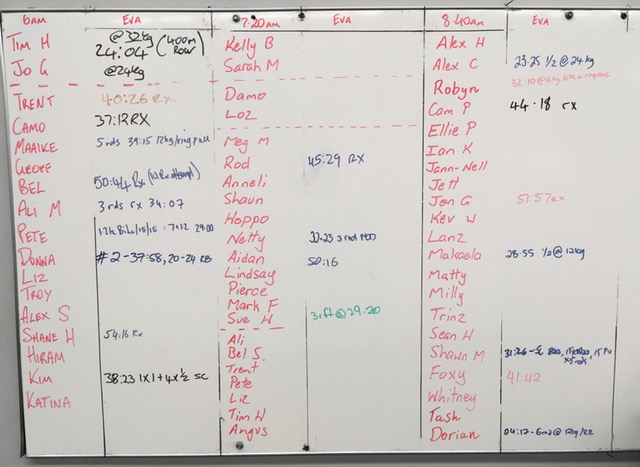 6am EVA
Tim H @32kg
24:04 (400m Row)
Jo G @24kg
TRENT 40:26 Rx
CAMO 37:12 RX
MAAIKE 5rds 39:15 12kg/ring pull
GEOFF
BEL 50:44 Rx
ALI M 3rds rx 34:07
PETE
DONNA #2-37:58, 20-24 KB
LIZ
TROY
ALEX S
SHANE H 54:16 Rx
HIRAM
KIM 38:23 1x1+4x½ SC
KATINA
7:20am Eva
Kelly B
Sarah M
Damo
Loz
Meg M
Rod 45:29 RX
Anneli
Shaun
Hoppo
Netty
Aidan 50:16
Lindsay
Pierce
Mark F
Sue H 3rft@29:20
Ali
Bel S.
Trent
Pete
Liz
Tim W
Angus
8:40am EVA
Alex H
Alex C 23:25 ½ @ 24kg
Robyn
Cam P 44.18 rx
Ellie P
Ian K
Jann-Nell
Jett
Jon G 51:57 RX
Kev W
Lanz
Makaela 28:55 ½ @ 12kg
Matty
Milly
Trinz
Sean H
Shawn M
Foxy 41:42
Whitney
Tash
Dorian